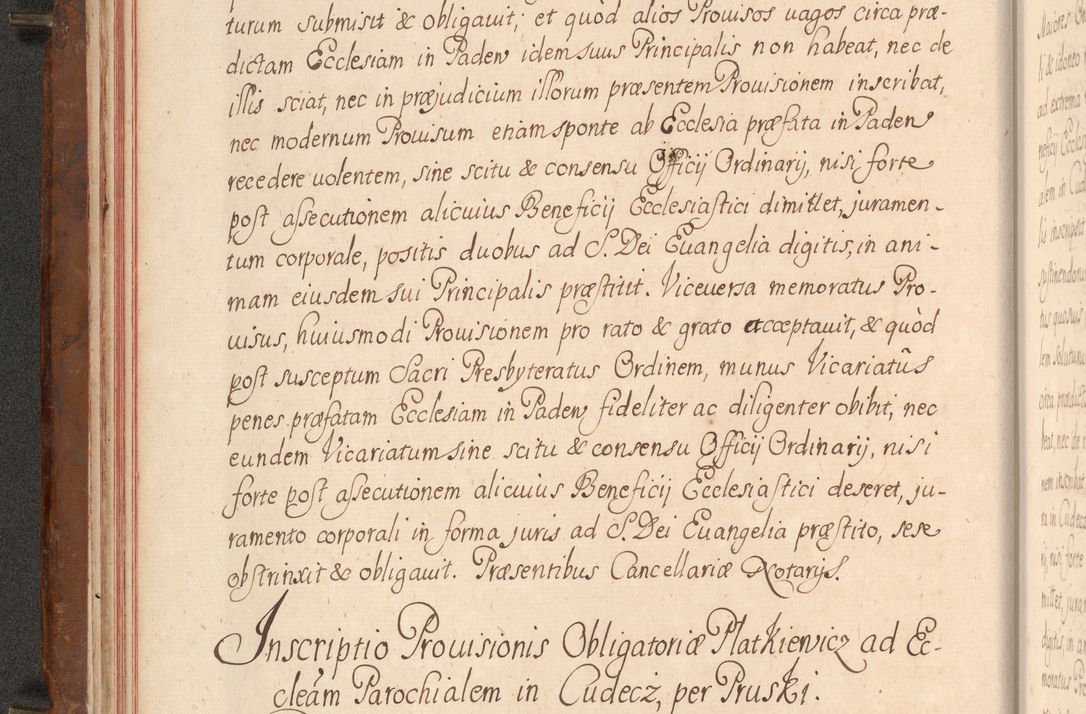 turum submisit & obligauit; et quòd alios Prouisos uagos circa præ-
dictam Ecclesiam in Paden idem suus Principalis non habeat, nec de
illis sciat, nec in præjudicium illorum præsentem Prouisionem inscribat,
nec modernum Prouisum etiam sponte ab Ecclesia præfata in Paden
recedere uolentem, sine scitu & consensu Officij Ordinarij, nisi forte
post assecutionem alicuius Beneficij Ecclesiastici dimittet, juramen-
tum corporale, positis duobus ad S. Dei Euangelia digitis, in ani-
mam eiusdem sui Principalis præstitit. Viceuersa memoratus Pro-
uisus, huiusmodi Prouisionem pro rato & grato acceptauit, & quòd
post susceptum Sacri Presbyteratus Ordinem, munus Vicariatûs
penes præfatam Ecclesiam in Paden fideliter ac diligenter obibit, nec
eundem Vicariatum sine scitu & consensu Officij Ordinarij, nisi
forte post assecutionem alicuius Beneficij Ecclesiastici deseret, ju-
ramento corporali in forma juris ad S. Dei Euangelia præstito, sese
obstrinxit & obligauit. Præsentibus Cancellariæ Notarijs.
Inscriptio Prouisionis Obligatoriæ Platkiewicz ad Ec-
cleãm Parochialem in Cudecz, per Pruski.